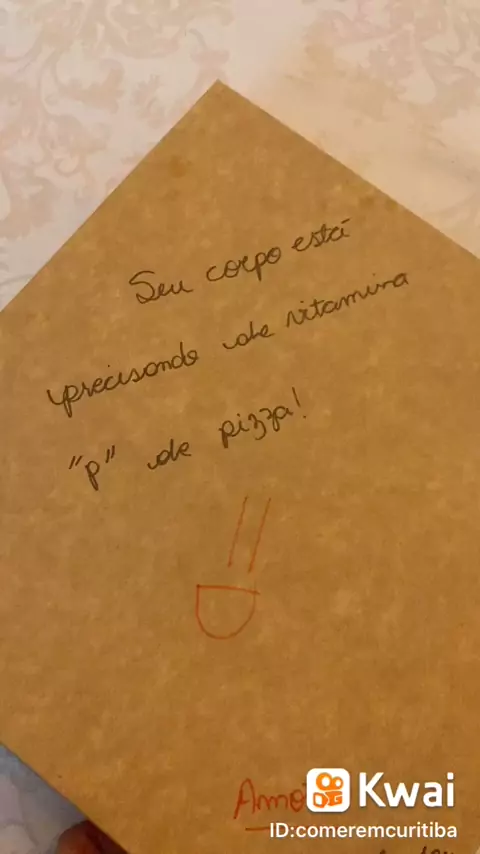 Seu corpo está
precisando de vitamina
"p" de pizza!
Kwai
ID:comeremcuritiba